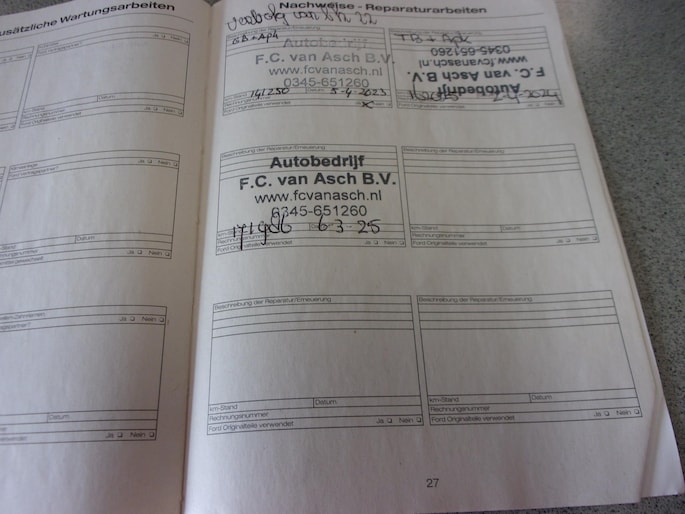 usätzliche Wartungsarbeiten
Ja ❏ Nein ❏
km-Stand
Datum
Ja ❏ Nein ❏
Ja ❏ Nein ❏
Datum
Ja ❏ Nein ❏
Ja ❏ Nein ❏
Datum
Ja ❏ Nein ❏
Nachweise - Reparaturarbeiten
GB + Apk
Autobedrijf
F.C. van Asch B.V.
www.fcvanasch.nl
0345-651260
141250
Datum
5-4-2023
Ford Originalteile verwendet
Nein ❏
TB + Apk
Autobedrijf
F.C. van Asch B.V.
www.fcvanasch.nl
0345-651260
2-4-2024
Ford Originalteile verwendet
Beschreibung der Reparatur/Erneuerung
Autobedrijf
F.C. van Asch B.V.
www.fcvanasch.nl
0345-651260
km-Stand
6 3 - 25
Rechnungsnummer
Ford Originalteile verwendet
Ja ❏ Nein ❏
Beschreibung der Reparatur/Erneuerung
km-Stand
Datum
Rechnungsnummer
Ford Originalteile verwendet
Ja ❏ Nein ❏
Beschreibung der Reparatur/Erneuerung
km-Stand
Datum
Rechnungsnummer
Ford Originalteile verwendet
Ja ❏ Nein ❏
Beschreibung der Reparatur/Erneuerung
km-Stand
Datum
Rechnungsnummer
Ford Originalteile verwendet
Ja ❏ Nein ❏
27